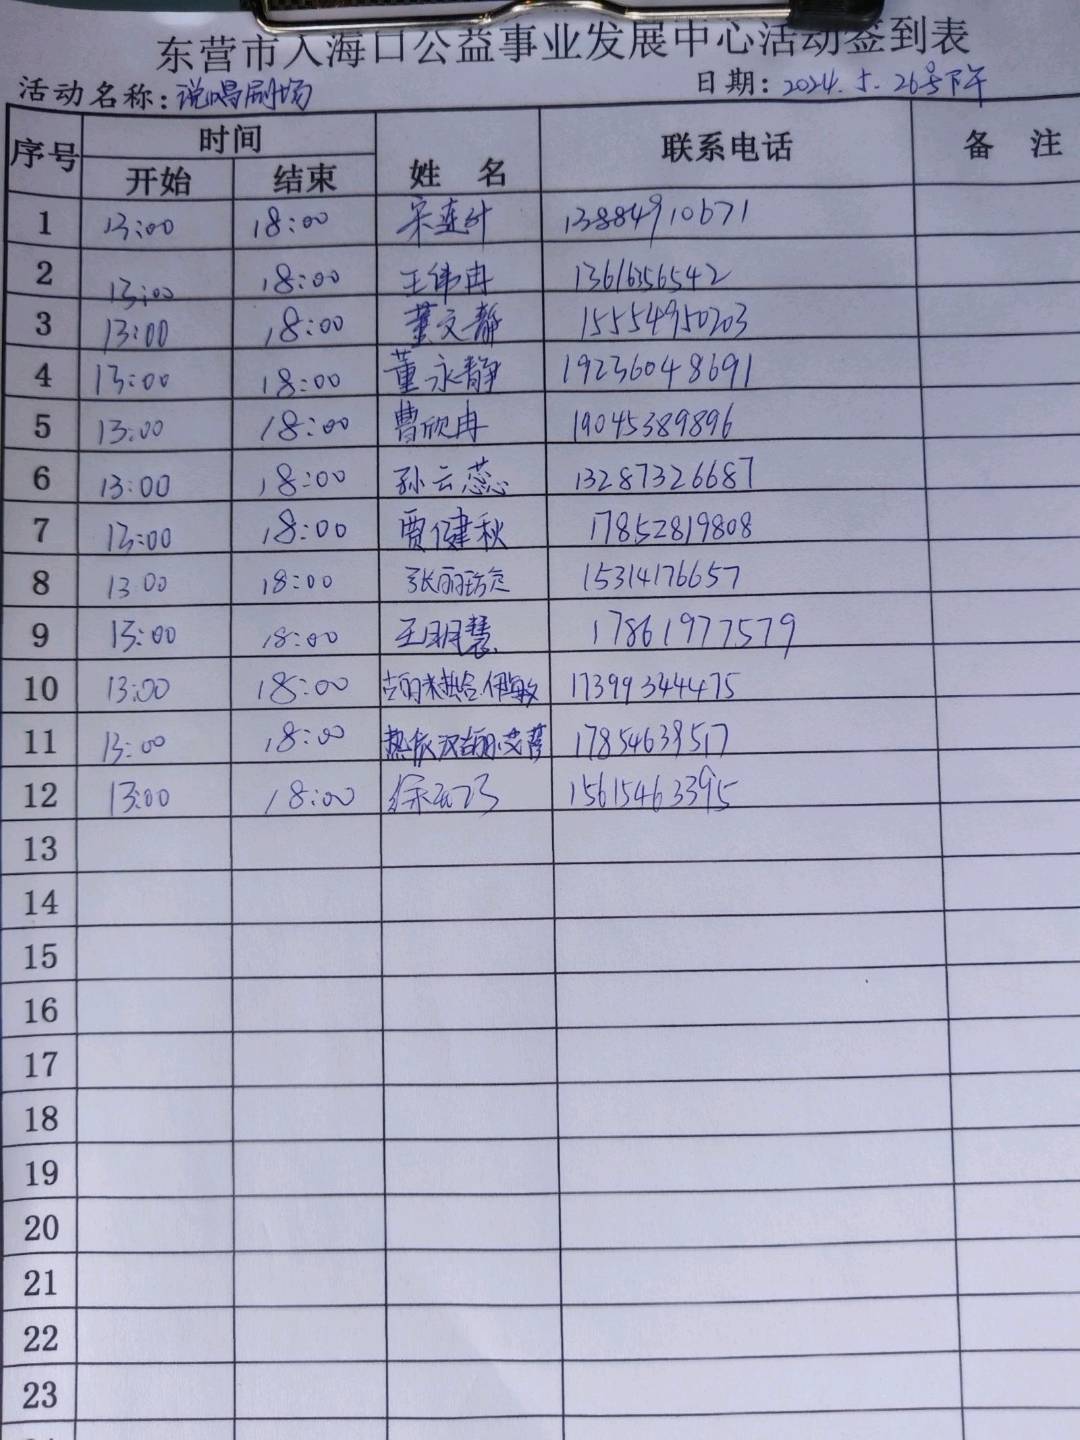 东营市入海口公益事业发展中心活动签到表
活动名称:说唱剧场 日期:2024.5.26号下午
序号 时间 姓 名 联系电话 备 注
开始 结束
1 13:00 18:00 宋连叶 13884910671
2 13:00 18:00 王伟冉 13616356542
3 13:00 18:00 董文静 15554950203
4 13:00 18:00 董永静 19236048691
5 13:00 18:00 曹欣冉 19045389896
6 13:00 18:00 孙云蕊 13287326687
7 13:00 18:00 贾健秋 17852819808
8 13:00 18:00 张丽 15314176657
9 13:00 18:00 王明慧 17861977579
10 13:00 18:00 古丽米热合·伊敏 17399344475
11 13:00 18:00 17854639517
12 13:00 18:00 徐 15615463395
13
14
15
16
17
18
19
20
21
22
23